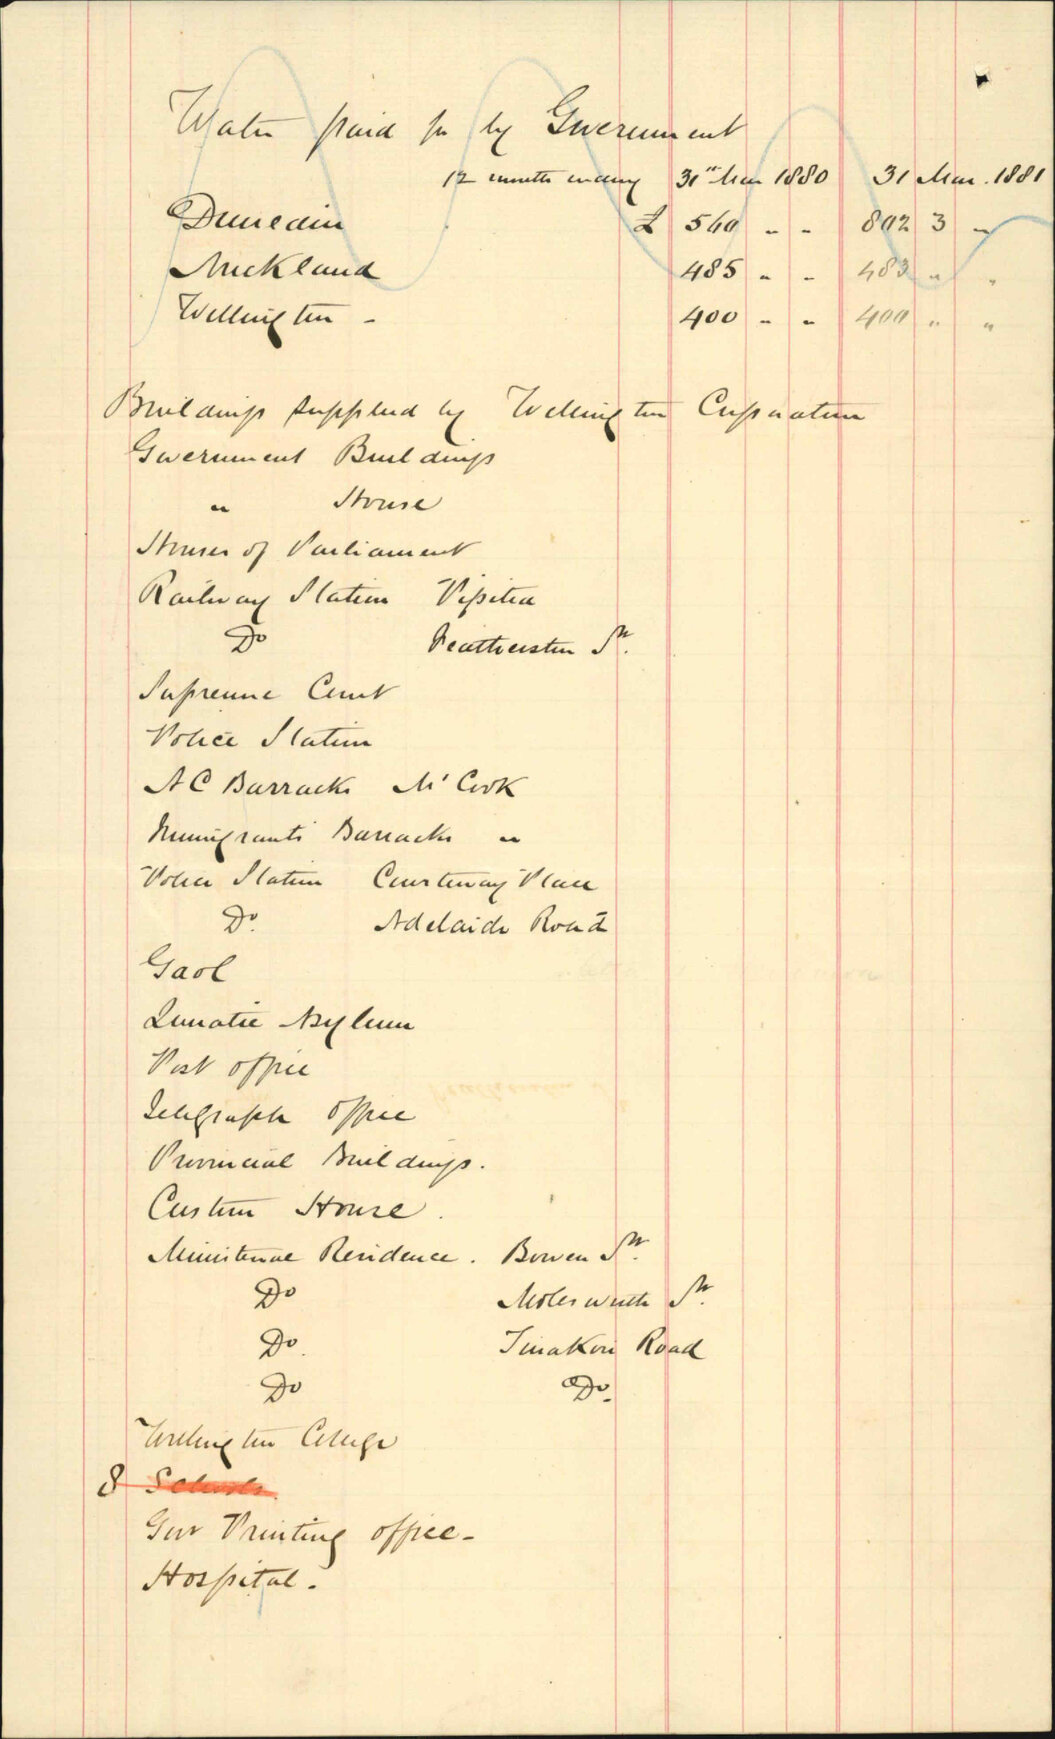 Water paid for by Government
12 months ending 31st Mar 1880 31 Mar. 1881
Dunedin £ 560 " - 802 3 "
Auckland 485 " - 483 " "
Wellington - 400 " " 400 " "
Buildings supplied by Wellington Corporation
Government Buildings
" House
Houses of Parliament
Railway Station Pipitea
Do Featherston St.
Supreme Court
Police Station
A C Barracks Mt Cook
Immigrants Barracks "
Police Station Courtenay Place
Do. Adelaide Road
Gaol
Lunatic Asylum
Post office
Telegraph office
Provincial Buildings.
Custom House.
Ministerial Residence. Bowen St.
Do Molesworth St.
Do. Tinakori Road
Do Do.
Wellington College
8 Schools.
Govt Printing office -
Hospital.